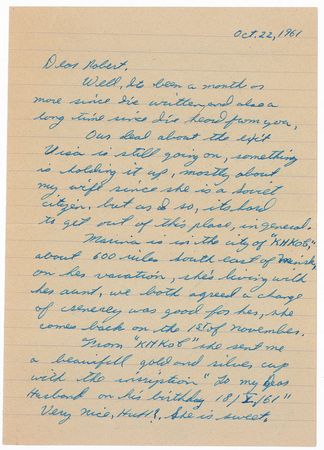 Oct. 22, 1961
Dear Robert.
Well, Its been a month or
more since I've written, and also a
long time since I've heard from you,
Our deal about the exit
Visa is still going on, something
is holding it up, mostly about
my wife since she is a Soviet
citizen. but as I so, its hard
to get out of this place, in general.
Marina is in the city of "KHKOB",
about 600 miles south east of Minsk,
on her vacation, she's living with
her aunt, we both agreed a change
of scenerey was good for her, she
comes back on the 1st of November.
From "KHKOB" she sent me
a beauifull gold and silver cup
with the insription "To my Dear
Husband on his birthday 18/X/61"
Very nice, Huh?, She is sweet.